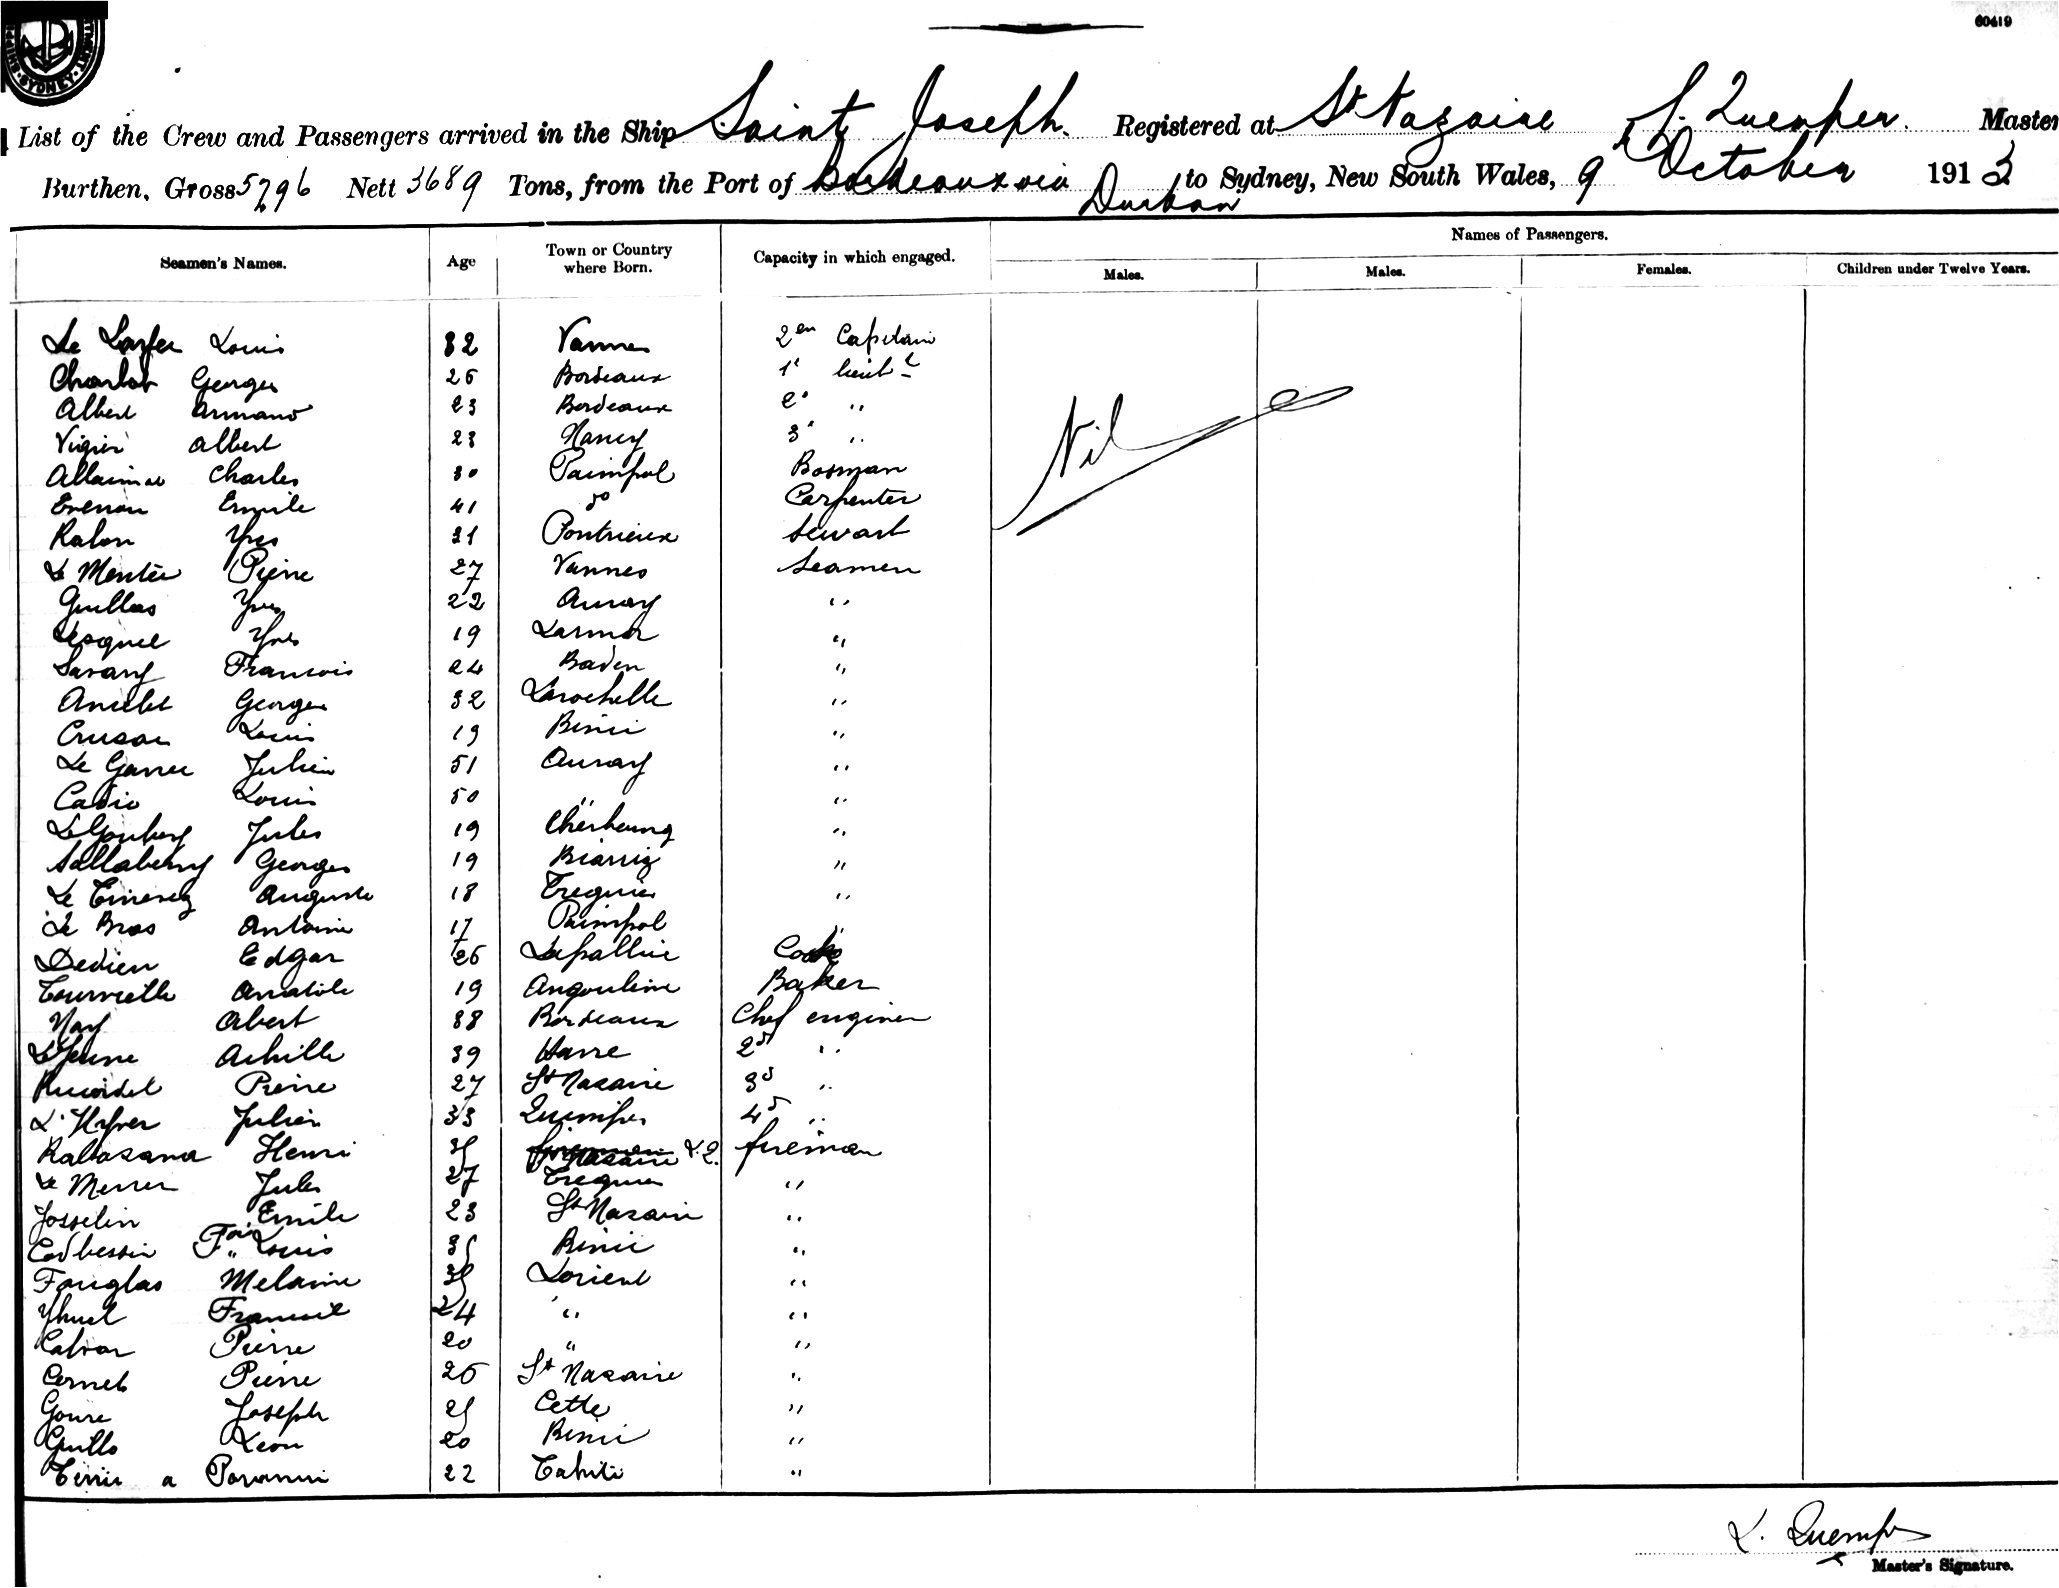 60419
SYDNEY
List of the Crew and Passengers arrived in the Ship Saint Joseph. Registered at St Nazaire L. Quemper. Master
Burthen, Gross 5296 Nett 3689 Tons, from the Port of Bordeaux via Durban to Sydney, New South Wales, 9 October 1913
Seamen's Names. Age Town or Country where Born. Capacity in which engaged. Names of Passengers.
Males. Males. Females. Children under Twelve Years.
Le Louis 32 Vannes 2en Capitain
Charlot Georges 26 Bordeaux 1r lieut
Albert Armand 23 Bordeaux 2d "
Vigier Albert 23 Nancy 3d "
Nil
Charles 30 Paimpol Bosman
Evenou Emile 41 do Carpenter
Rabon Yves 31 Pontrieux Stewart
Le Mentec Pierre 27 Vannes Seamen
Guillas Yves 22 Auray "
Yves 19 Larmor "
Savary Francois 24 Baden "
Ancelet Georges 32 Larochelle "
Louis 19 Binic "
Le Garrec Julien 51 Auray "
Cadio Louis 50 " "
Jules 19 Cherbourg "
Sallaberry Georges 19 Biarriz "
Le Auguste 18 Treguier "
Le Bras Antoine 17 Paimpol "
Dedieu Edgar 26 Lapallice Cook
Anatole 19 Angouleme Baker
Nay Albert 38 Bordeaux Chef enginer
Le Jeune Achille 39 Havre 2d "
Pierre 27 St Nazaire 3d "
Julien 33 Quimper 4d "
Henri 35 Nazaire L.Q. fireman
Le Merrer Jules 27 Treguier "
Josselin Emile 23 St Nazaire "
Louis 35 Binic "
Fouglas Melaine 35 Lorient "
Yhuel 24 " "
Calvar Pierre 20 " "
Cornet Pierre 26 St Nazaire "
Goure Joseph 25 Cette "
Guillo Leon 20 Binic "
a 22 Tahiti "
L. Quemper
Master's Signature.